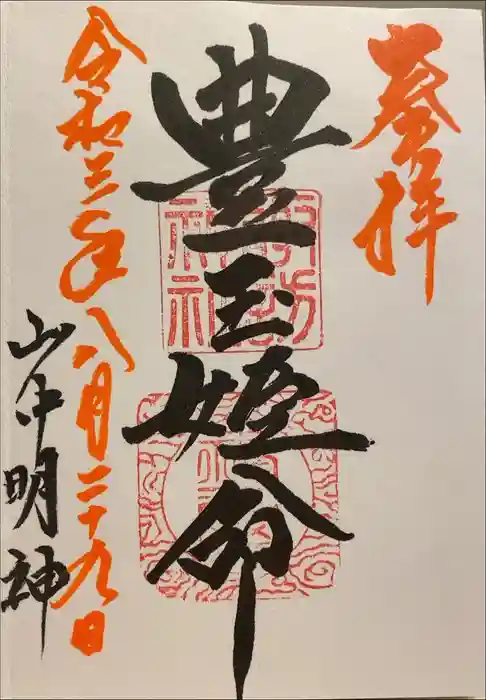 奉拝
豊玉姫命
令和三年八月二十九日
山中明神